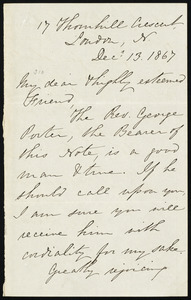 17 Thornhill Crescent
London, N.
Dec. 13. 1867
My dear & highly esteemed
Friend,
The Rev. George
Porter, the Bearer of
this Note, is a good
man & true. If he
should call upon you
I am sure you will
receive him with
cordiality for my sake.
Greatly rejoicing